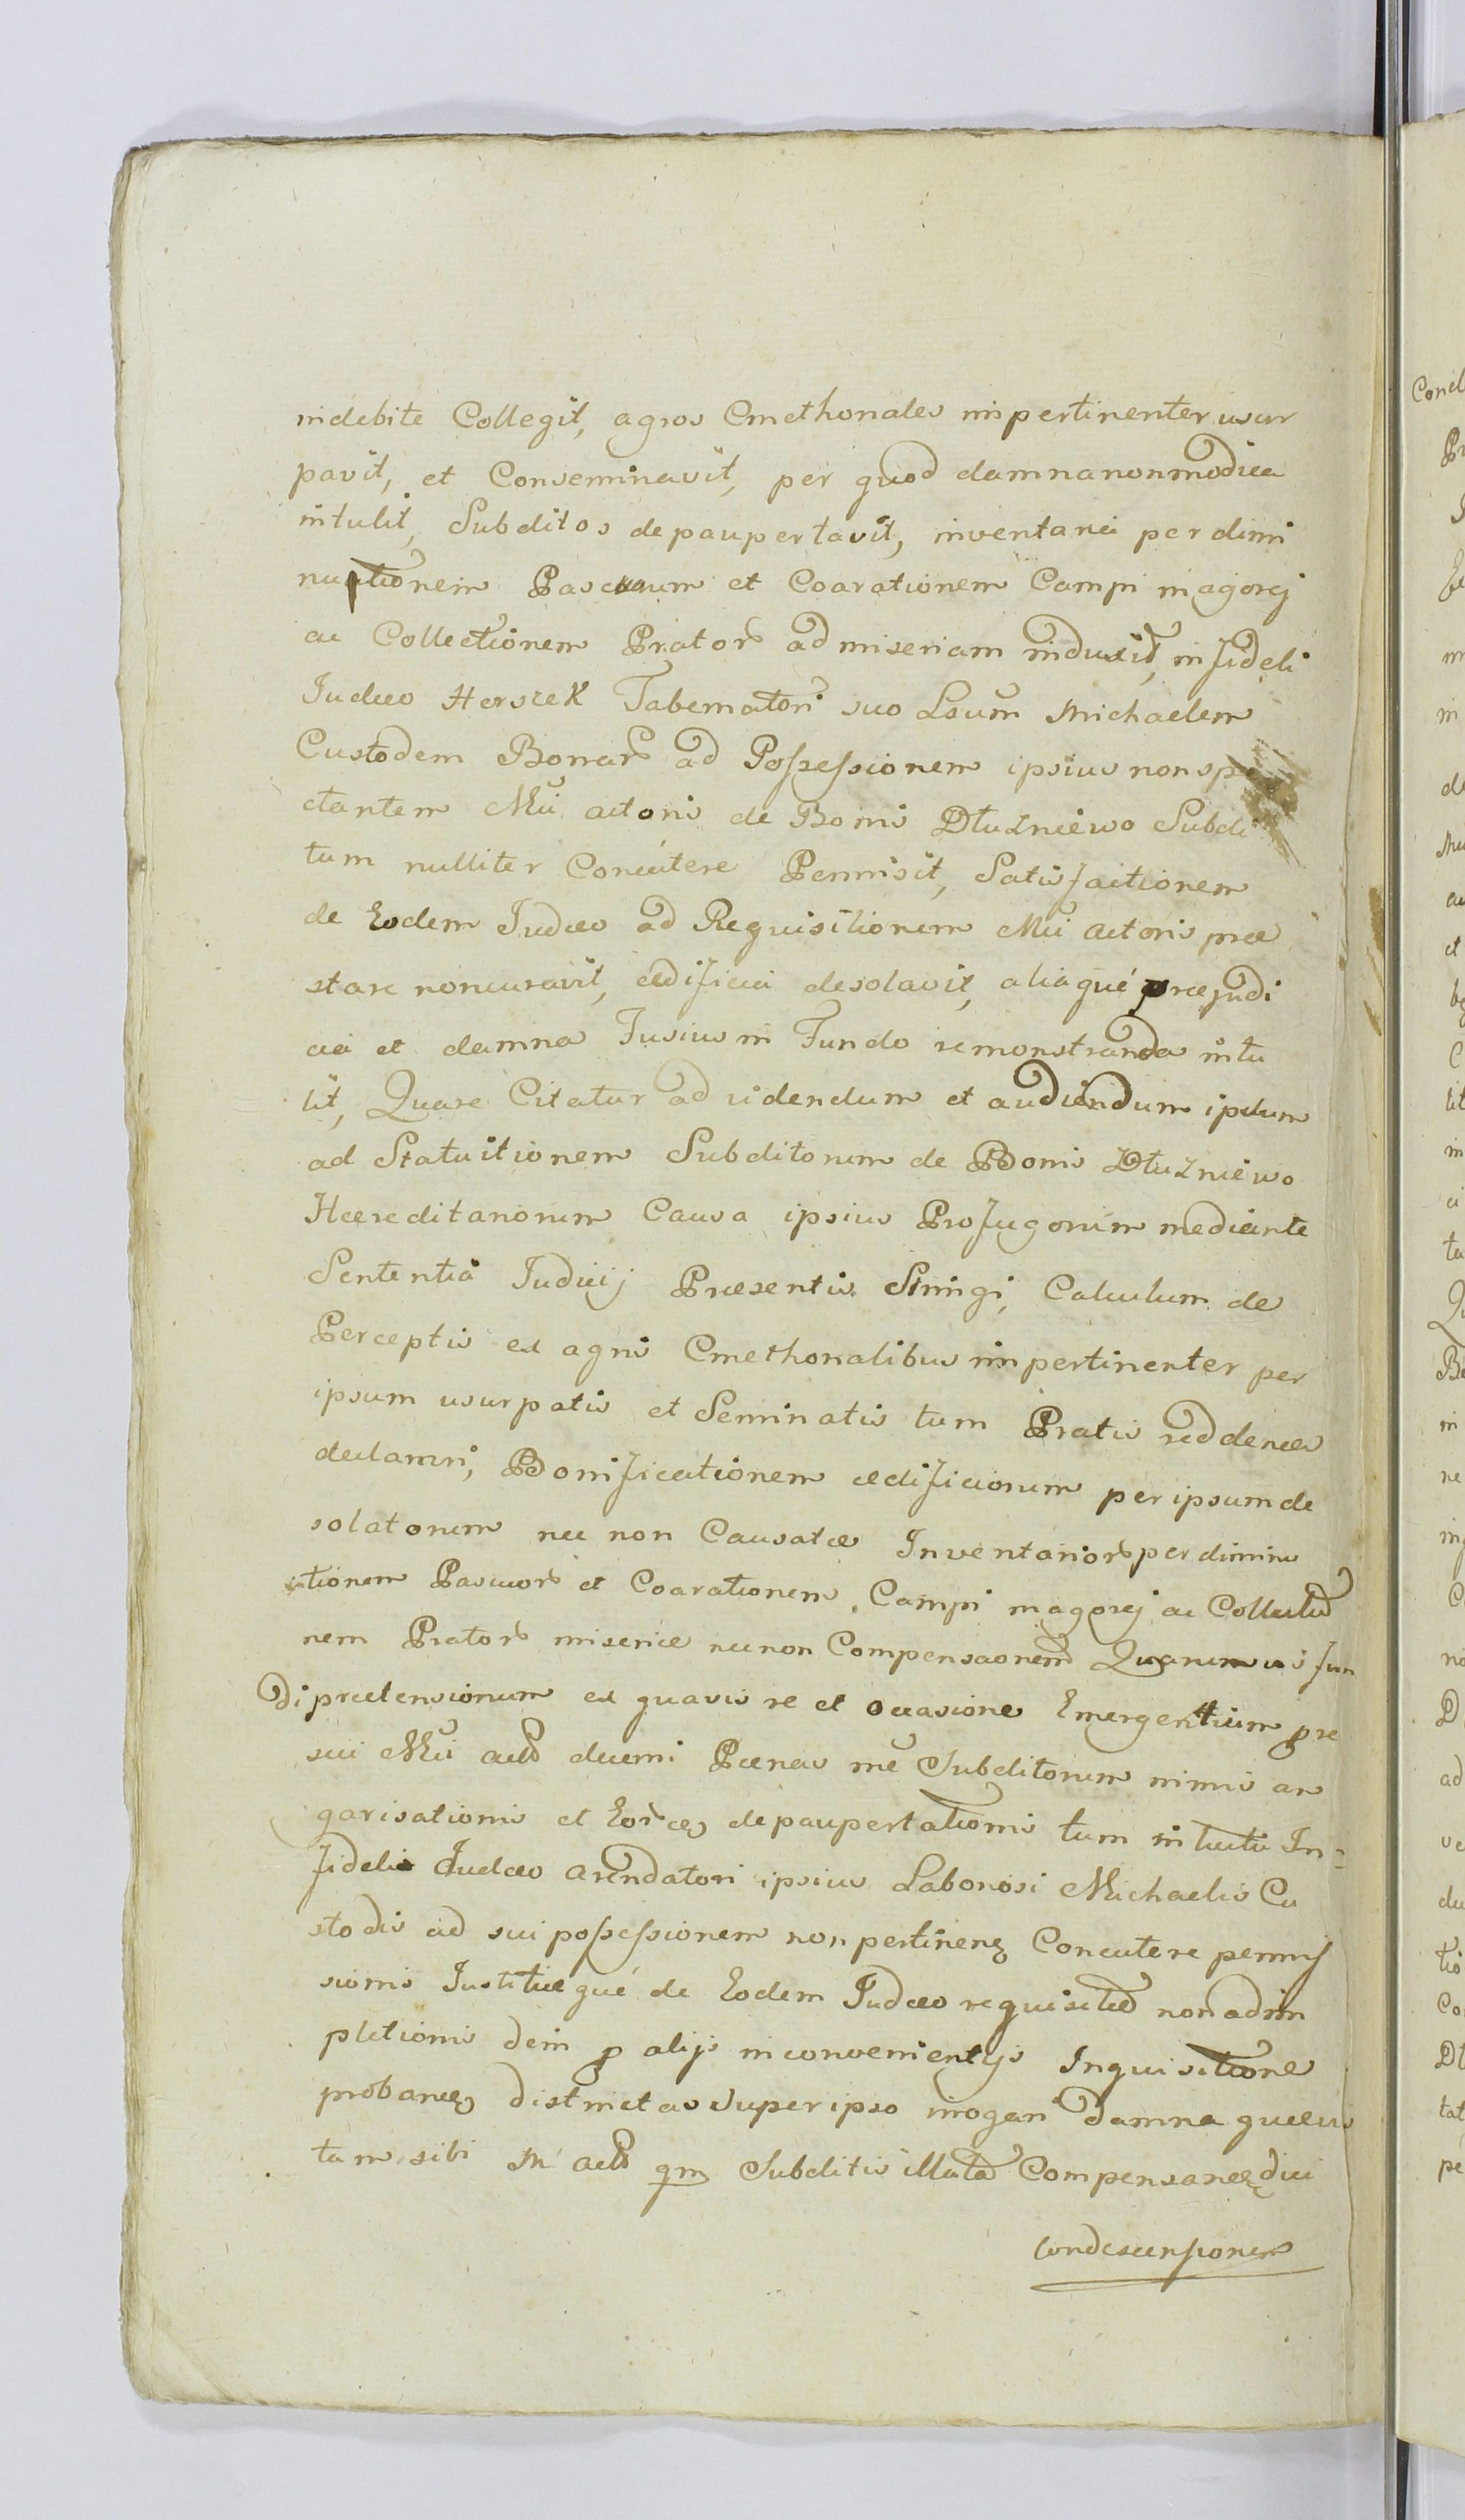 indebite Collegit, agros Cmethonales impertinenter usur
pavit, et Conseminavit, per quod damna non modica
intulit, Subditos depaupertavit, inventaria per dimi
nutionem Pascuum et Coarationem Campi magorej
ac Collectionem Prator ad miseriam induxit, infideli
Iudæo Herszek Tabernatori suo Lsum Michaelem
Custodem Bonar ad Possessionem ipsius non spe
ctantem Mci actoris de Bonis Dłużniewo Subdi
tum nulliter Concutere Permisit, Satisfactionem
de Eodem Judæo ad Requisitionem Mci actoris præ
stare non curavit, ædificia desolavit, aliaqué præjudi
cia et damna Fusius in Fundo remonstranda intu
lit, Quare Citatur ad videndum et audiendum ipsum
ad Statuitionem Subditorum de Bonis Dłużniewo
Hæreditariorum Causa ipsius Profugorum mediante
Sententia Judicij Præsentis Stringi, Calculum de
Perceptis ex agris Cmethonalibus impertinenter per
ipsum usurpatis et Seminatis tum Pratis reddencia
declarari, Bonificationem ædificiorum per ipsum de
solatorum nec non Causatæ Inventarior per diminu
tionem Pascuor et Coarationem Campi magorej ac Collectio
nem Prator miseriæ nec non Compensaonem Quarumvis fun
di prætensionum ex quavis re et occasione Emergentium pre
sui Mci acto decerni Pænas rne Subditorum nimis an
garisationis et Eorcę depaupertationis tum intuitu In=
fidelis Judæo arendatori ipsius Laboriosi Michaelis Cu
stodis ad sui possessionem non pertinenę Concutere permis
sionis Justitiæqué de Eodem Judæo requisitæ non adim
pletionis dein p alijs inconvenientijs Inquisitione
probancę districtas super ipso irrogari damna quævis
tam sibi M acto qm Subditis illata Compensancę dici
condescensionem